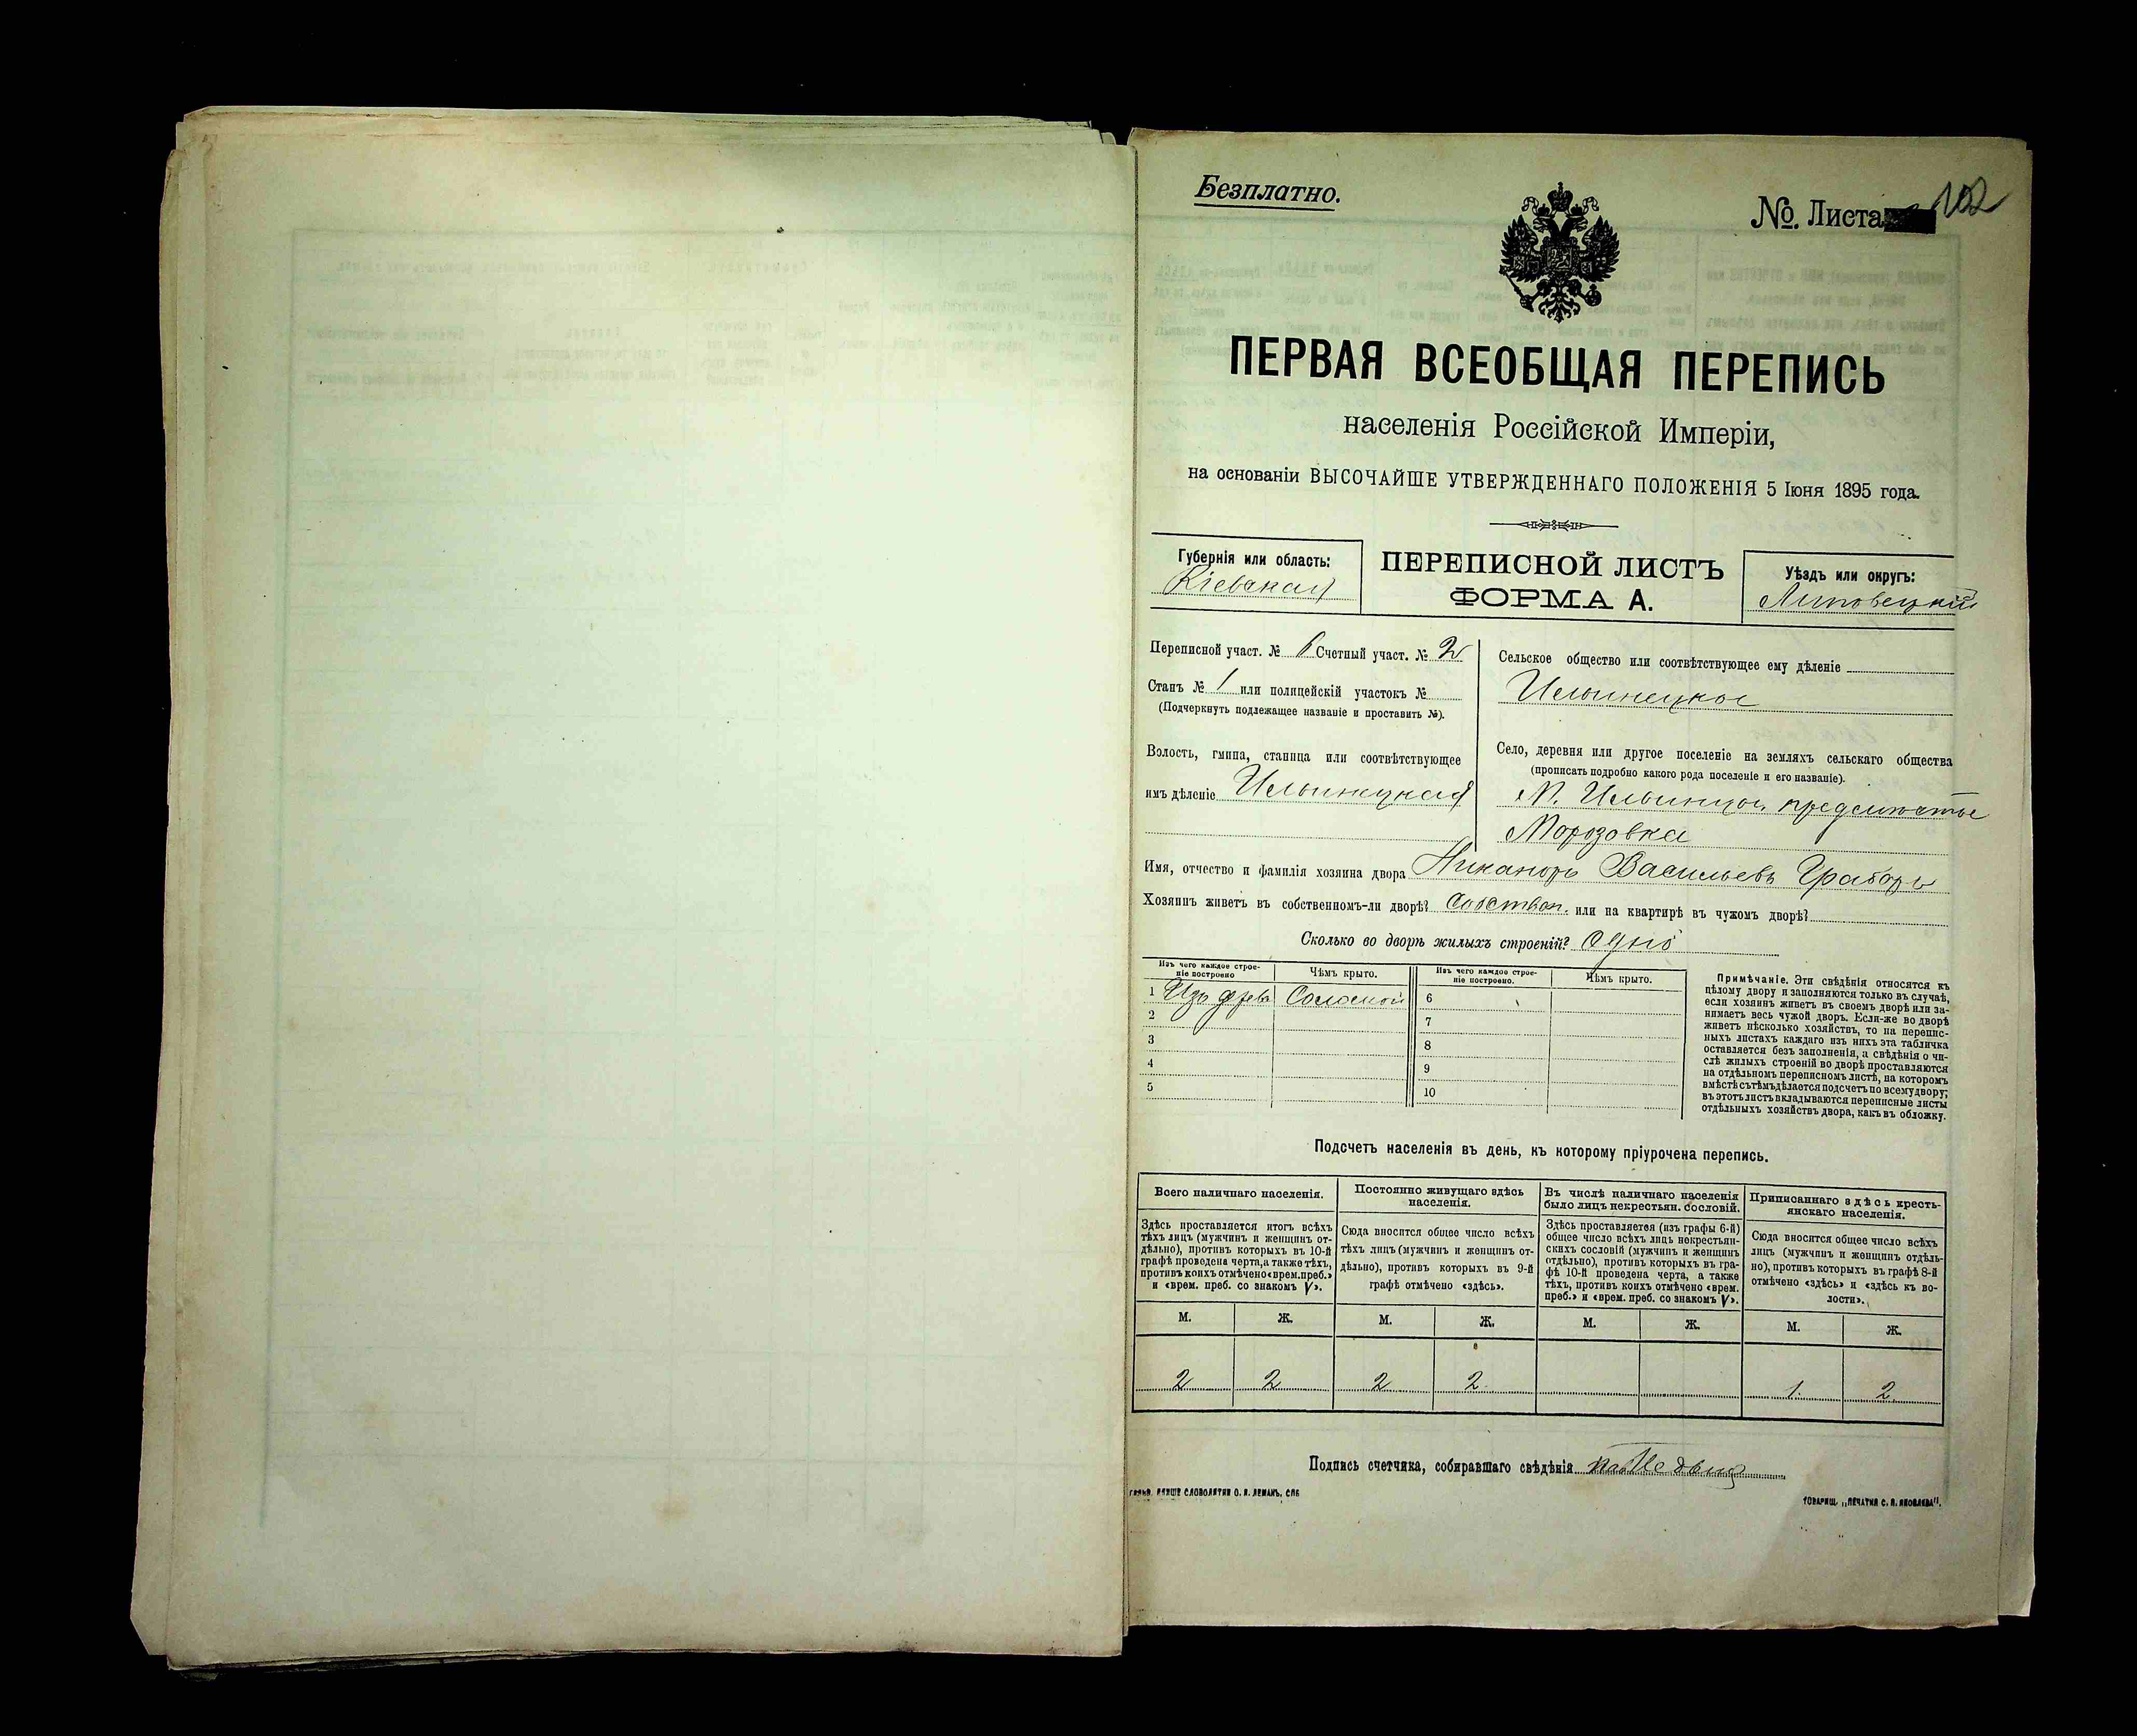 Безплатно.
№. Листа 102
ПЕРВАЯ ВСЕОБЩАЯ ПЕРЕПИСЬ
населенія Россійской Имперіи,
на основаніи ВЫСОЧАЙШЕ УТВЕРЖДЕННАГО ПОЛОЖЕНІЯ 5 Іюня 1895 года.
Губернія или область:
Кіевская
ПЕРЕПИСНОЙ ЛИСТЪ
ФОРМА А.
Уѣздъ или округъ:
Липовецкій
Переписной участ. № 6 Счетный участ. № 2
Станъ № 1 или полицейскій участокъ №
(Подчеркнуть подлежащее названіе и проставить №).
Волость, гмина, станица или соотвѣтствующее
имъ дѣленіе Ильинецкая
Сельское общество или соотвѣтствующее ему дѣленіе
Ильинецкое
Село, деревня или другое поселеніе на земляхъ сельскаго общества
(прописать подробно какого рода поселеніе и его названіе).
М. Ильинцы, предмѣстье
Морозовка
Имя, отчество и фамилія хозяина двора Никаноръ Васильевъ Граборъ
Хозяинъ живетъ въ собственномъ-ли дворѣ? Собствен. или на квартирѣ въ чужомъ дворѣ?
Сколько во дворѣ жилыхъ строеній? Одно
Изъ чего каждое строе-
ніе построено
Чѣмъ крыто.
Изъ чего каждое строе-
ніе построено.
Чѣмъ крыто.
1 Изъ дерева Соломой 6
2 7
3 8
4 9
5 10
Примѣчаніе. Эти свѣдѣнія относятся къ
цѣлому двору и заполняются только въ случаѣ,
если хозяинъ живетъ въ своемъ дворѣ или за-
нимаетъ весь чужой дворъ. Если-же во дворѣ
живетъ нѣсколько хозяйствъ, то на перепис-
ныхъ листахъ каждаго изъ нихъ эта табличка
оставляется безъ заполненія, а свѣдѣнія о чи-
слѣ жилыхъ строеній во дворѣ проставляются
на отдѣльномъ переписномъ листѣ, на которомъ
вмѣстѣ съ тѣмъ дѣлается подсчетъ по всему двору;
въ этотъ листъ вкладываются переписные листы
отдѣльныхъ хозяйствъ двора, какъ въ обложку.
Подсчетъ населенія въ день, къ которому пріурочена перепись.
Всего наличнаго населенія.
Здѣсь проставляется итогъ всѣхъ
тѣхъ лицъ (мужчинъ и женщинъ от-
дѣльно), противъ которыхъ въ 10-й
графѣ проведена черта, а также тѣхъ,
противъ коихъ отмѣчено «врем. преб.»
и «врем. преб. со знакомъ V».
Постоянно живущаго здѣсь
населенія.
Сюда вносится общее число всѣхъ
тѣхъ лицъ (мужчинъ и женщинъ от-
дѣльно), противъ которыхъ въ 9-й
графѣ отмѣчено «здѣсь».
Въ числѣ наличнаго населенія
было лицъ некрестьян. сословій.
Здѣсь проставляется (изъ графы 6-й)
общее число всѣхъ лицъ некрестьян-
скихъ сословій (мужчинъ и женщинъ
отдѣльно), противъ которыхъ въ гра-
фѣ 10-й проведена черта, а также
тѣхъ, противъ коихъ отмѣчено «врем.
преб.» и «врем. преб. со знакомъ V».
Приписаннаго здѣсь кресть-
янскаго населенія.
Сюда вносится общее число всѣхъ
лицъ (мужчинъ и женщинъ отдѣль-
но), противъ которыхъ въ графѣ 8-й
отмѣчено «здѣсь» и «здѣсь къ во-
лости».
М. Ж. М. Ж. М. Ж. М. Ж.
2 2 2 2 1. 2
Подпись счетчика, собиравшаго свѣдѣнія
СЛОВОЛИТНИ О. И. ЛЕМАНЪ, СПБ
ТОВАРИЩ. „ПЕЧАТНЯ С. П. ЯКОВЛЕВА".